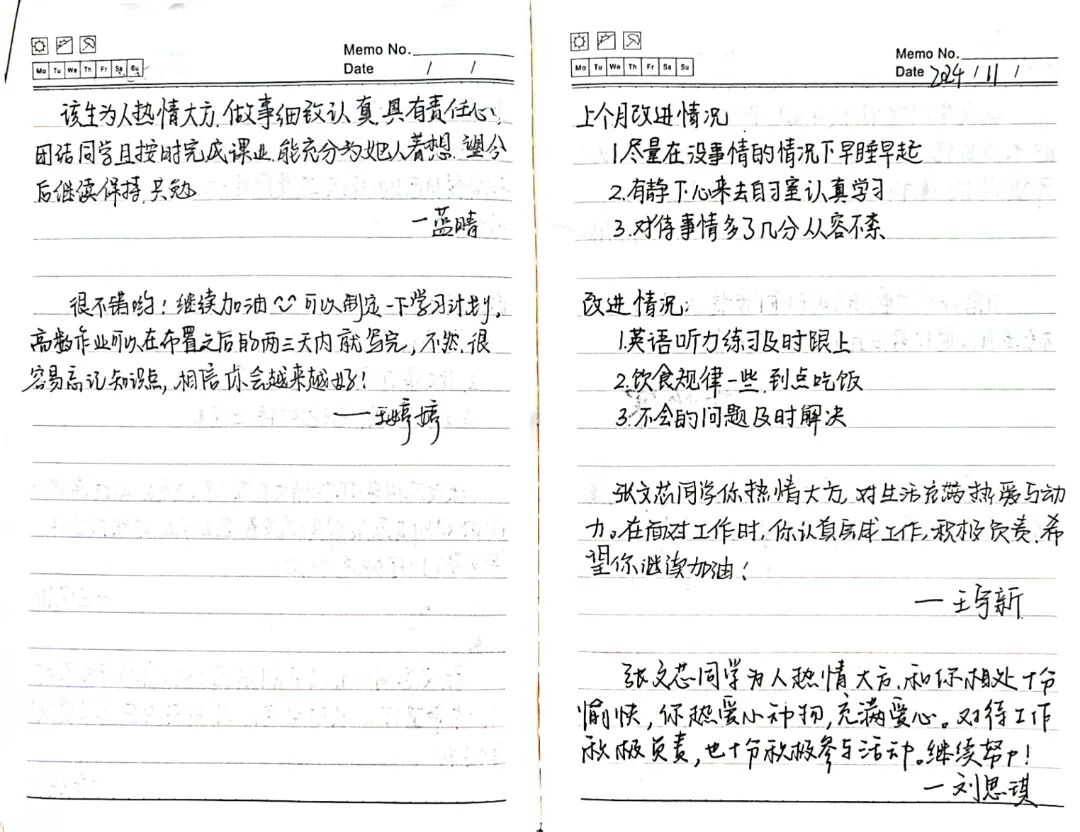 Memo No.
Mo Tu We Th Fr Sa Su
Date / /
该生为人热情大方,做事细致认真,具有责任心,
团结同学且按时完成课业,能充分为他人着想,望今
后继续保持,共勉
—蓝晴
很不错哟!继续加油 可以制定一下学习计划,
高数作业可以在布置之后的两三天内就写完,不然很
容易忘记知识点,相信你会越来越好!
——王婷婷
Memo No.
Mo Tu We Th Fr Sa Su
Date 2024/11/
上个月改进情况
1.尽量在没事情的情况下早睡早起
2.有静下心来去自习室认真学习
3.对待事情多了几分从容不紊
改进情况:
1.英语听力练习及时跟上
2.饮食规律一些,到点吃饭
3.不会的问题及时解决
张文芯同学你热情大方,对生活充满热爱与动
力。在面对工作时,你认真完成工作,积极负责,希
望你继续加油!
—王宇新
张文芯同学为人热情大方,和你相处十分
愉快,你热爱小动物,充满爱心。对待工作
积极负责,也十分积极参与活动。继续努力!
—刘思琪